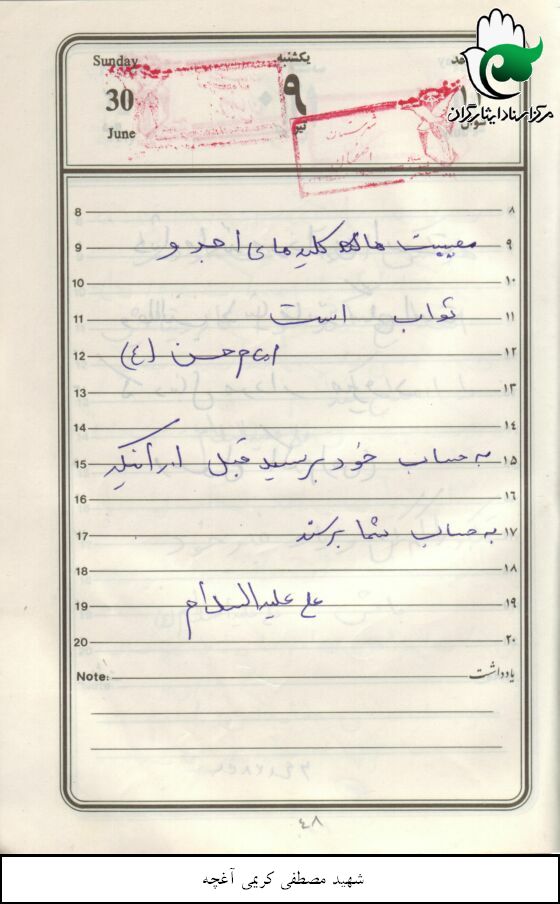 Sunday
یکشنبه
30
۹
June
تیر
مرکز اسناد ایثارگران
8 ۸
9 مصیبت ها کلیدهای اجر و ۹
10 ۱۰
11 ثواب است ۱۱
12 امام حسن (ع) ۱۲
13 ۱۳
14 ۱۴
15 به حساب خود برسید قبل از آنکه ۱۵
16 ۱۶
17 به حساب شما برسند ۱۷
18 ۱۸
19 علی علیه السلام ۱۹
20 ۲۰
Note: یادداشت
۴۸
شهید مصطفی کریمی آغچه